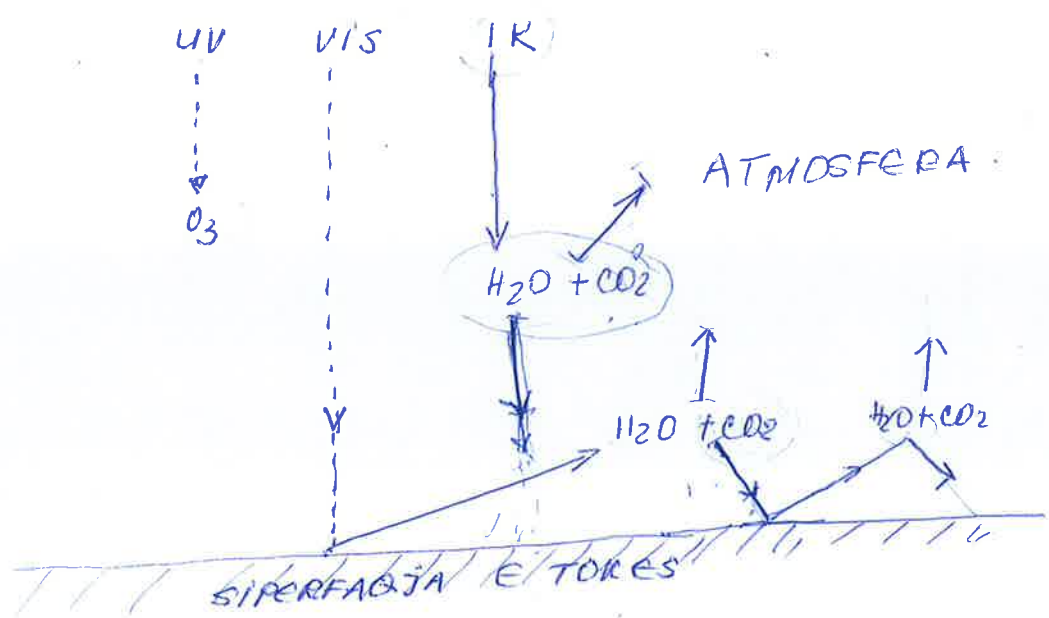 UV VIS IK
ATMOSFERA
O3
H2O + CO2
H2O + CO2
H2O + CO2
SIPERFAQJA E TOKES